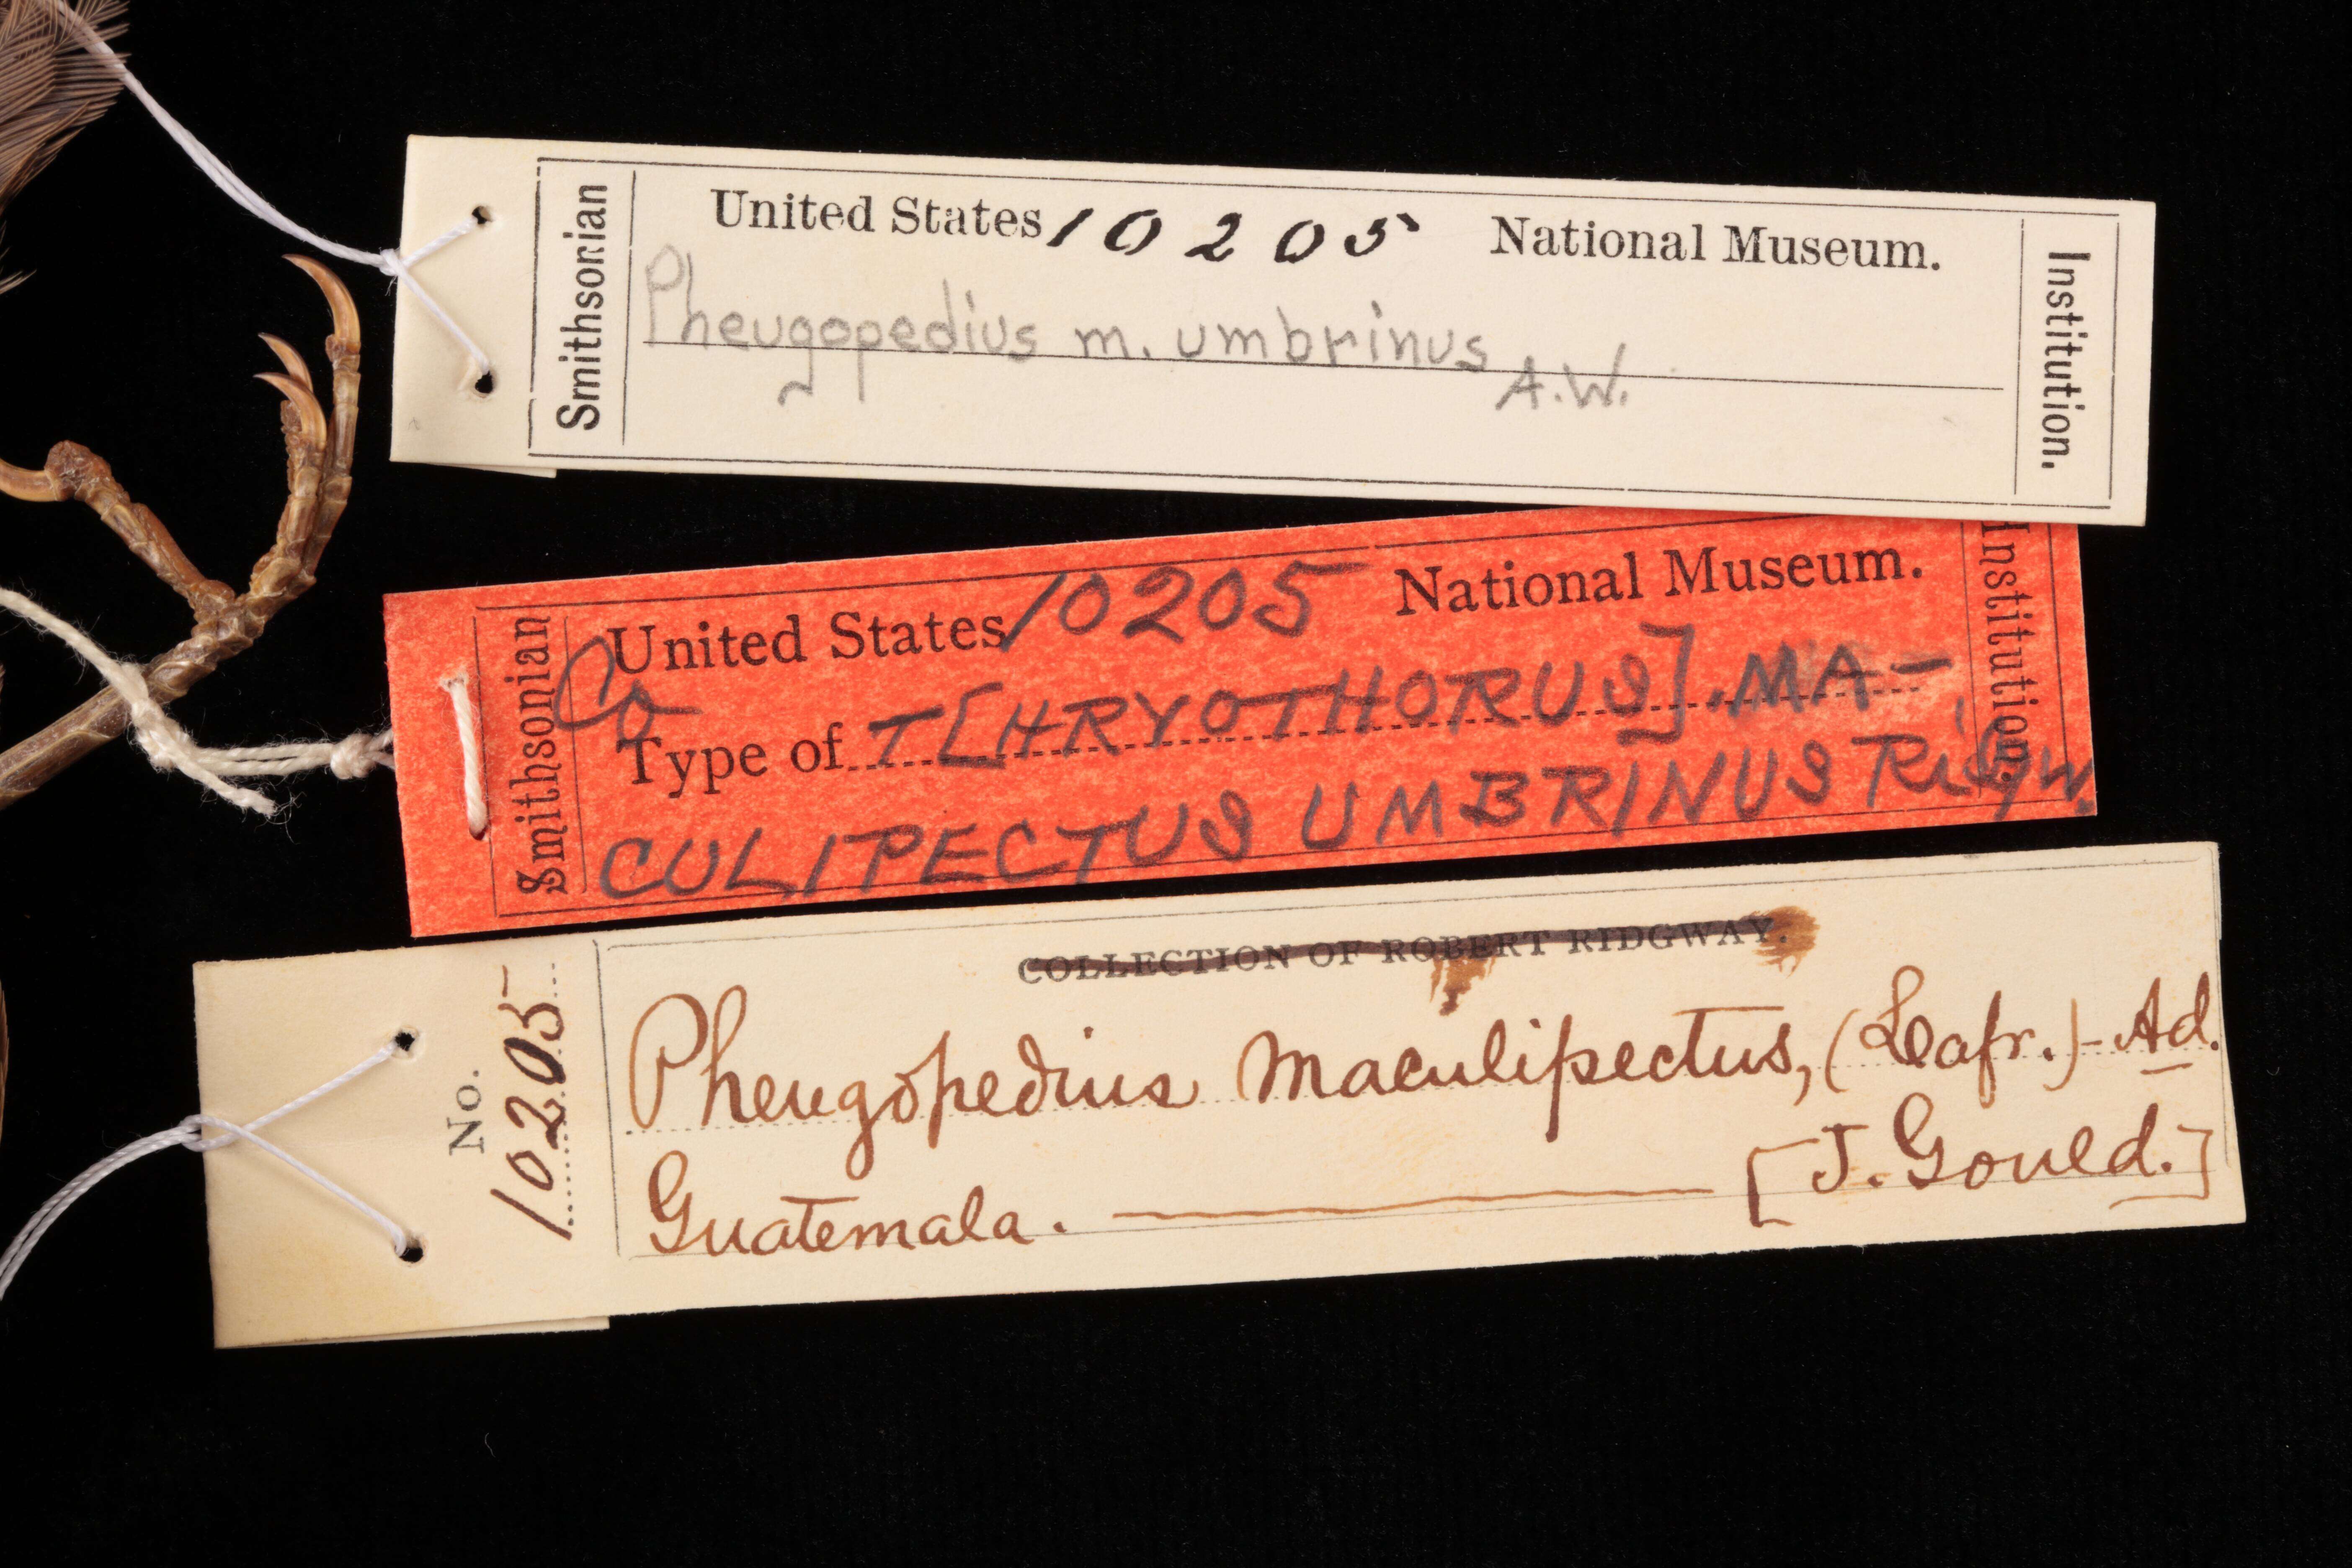 Smithsonian
United States 10205 National Museum.
Pheugopedius m. umbrinus
A.W.
Institution.
Smithsonian
United States 10205 National Museum.
Co
Type of T[HRYOTHORUS]. MA-
CULIPECTUS UMBRINUS Ridgw.
Institution.
No.
10205
COLLECTION OF ROBERT RIDGWAY.
Pheugopedius maculipectus, (Lafr.) - Ad.
Guatemala. [J. Gould.]